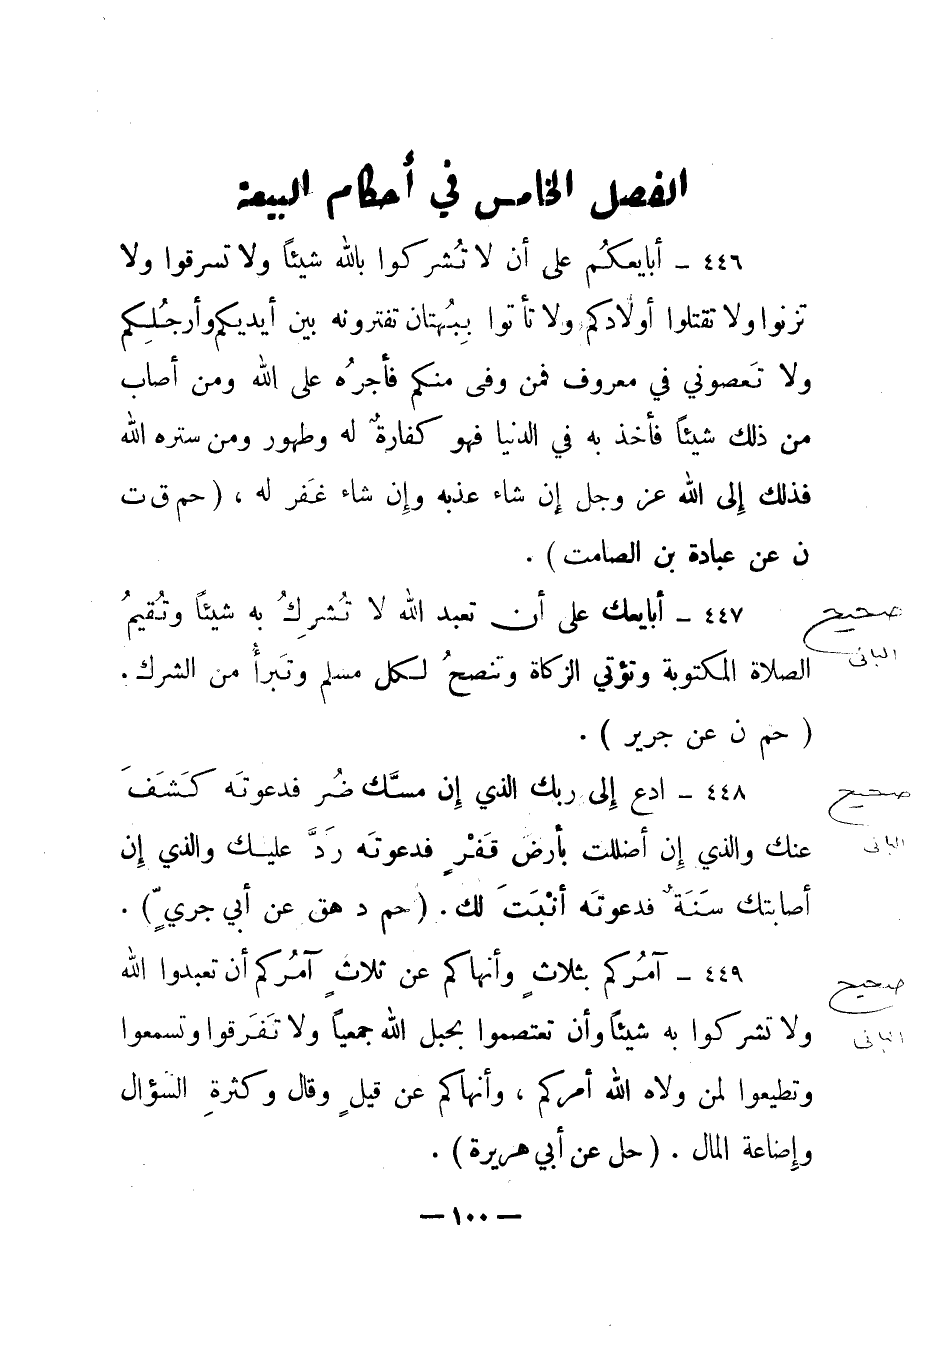 الفصل الخامس في أحكام البيعة
٤٤٦ - أبايعكُم على أن لا تُشركوا بالله شيئاً ولا تسرقوا ولا
تزنوا ولا تقتلوا أولادكم ولا تأتوا بِبُهتان تفترونه بين أيديكم وأرجُلِكم
ولا تَعصوني في معروف فمن وفى منكم فأجرُه على الله ومن أصاب
من ذلك شيئاً فأخذ به في الدنيا فهو كفارةٌ له وطهور ومن ستره الله
فذلك إلى الله عز وجل إن شاء عذبه وإن شاء غَفر له ، ( حم ق ت
ن عن عبادة بن الصامت ) .
٤٤٧ - أبايعك على أن تعبد الله لا تُشرِكُ به شيئاً وتُقيمُ
صحيح
الصلاة المكتوبة وتؤتي الزكاة وتنصحُ لكل مسلم وتَبرأُ من الشرك .
البانى
( حم ن عن جرير ) .
٤٤٨ - ادع إلى ربك الذي إن مسَّك ضُر فدعوتَه كَشَفَ
صحيح
عنك والذي إن أضللت بأرض قَفْرٍ فدعوتَه رَدَّ عليك والذي إن
البانى
أصابتك سَنَةٌ فدعوتَه أنْبَتَ لك . ( حم د هق عن أبي جريٍّ ) .
٤٤٩ - آمُركم بثلاثٍ وأنهاكم عن ثلاثٍ آمُركم أن تعبدوا الله
صحيح
ولا تشركوا به شيئاً وأن تعتصموا بحبل الله جمعياً ولا تَفَرقوا وتسمعوا
البانى
وتطيعوا لمن ولاه الله أمركم ، وأنهاكم عن قيلٍ وقال وكثرةِ السؤال
وإضاعة المال . ( حل عن أبي هريرة ) .
— ١٠٠ —